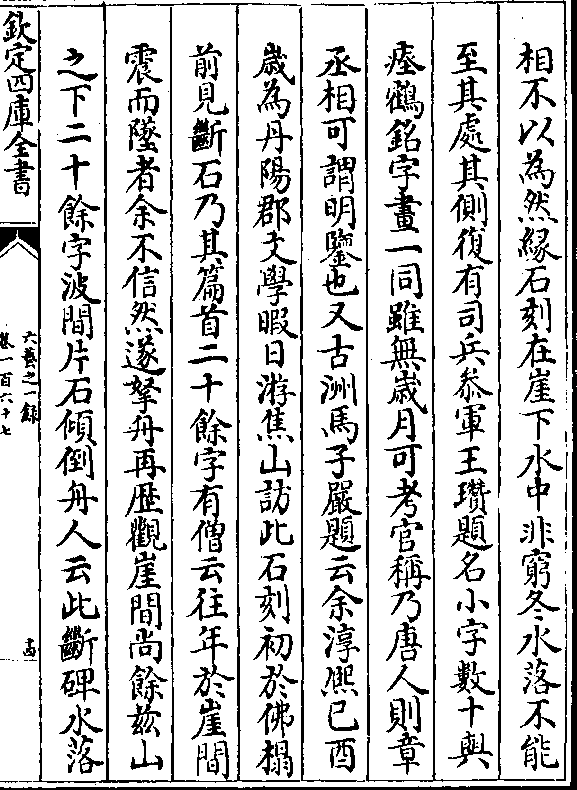 相不以為然緣石刻在崖下水中非窮冬水落不能
至其處其側復有司兵叅軍王瓚題名小字數十與
瘞鶴銘字畫一同雖無歲月可考官稱乃唐人則章
丞相可謂明鑒也又古洲馬子嚴題云余淳熈己酉
歲為丹陽郡文學暇日游焦山訪此石刻初於佛榻
前見斷石乃其篇首二十餘字有僧云往年於崖間
震而墜者余不信然遂拏舟再歷觀崖間尚餘兹山
之下二十餘字波間片石傾倒舟人云此斷碑水落
欽定四庫全書
六藝之一録
卷一百六十七